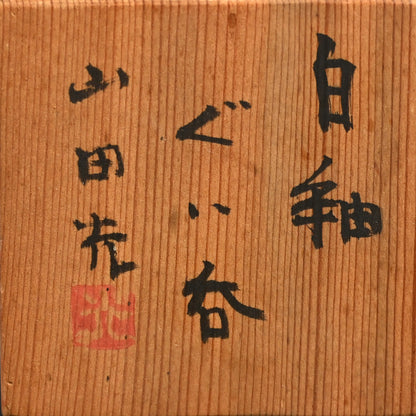 白釉
ぐい呑
山田光